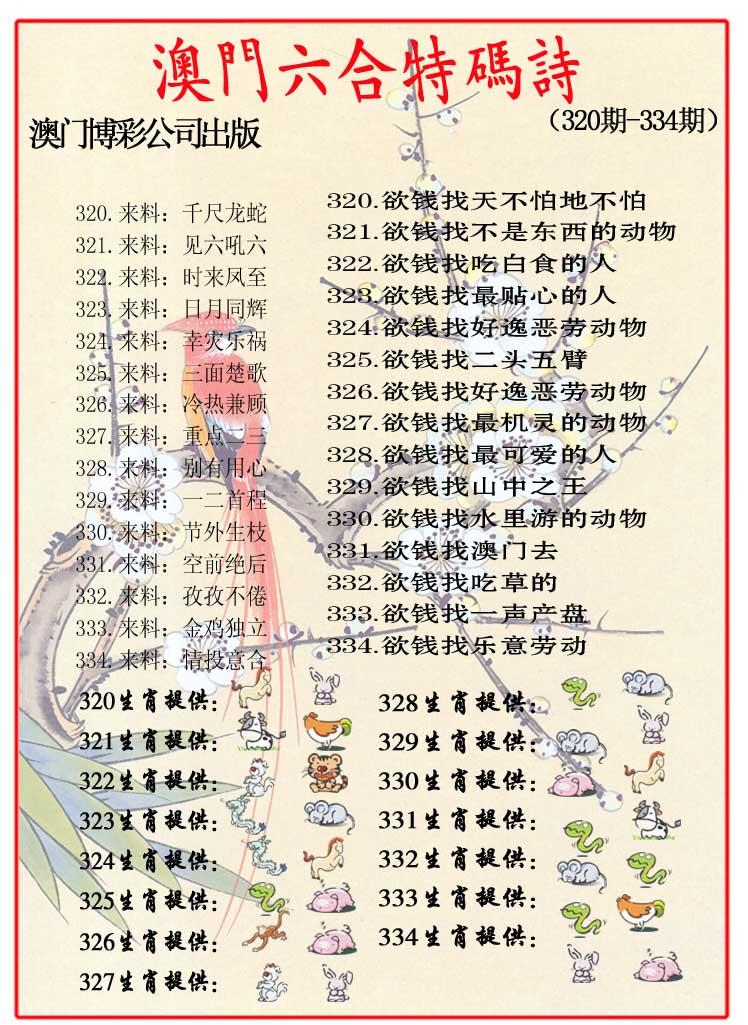 澳門六合特碼詩
澳门博彩公司出版
（320期-334期）
320.来料：千尺龙蛇
321.来料：见六吼六
322.来料：时来凤至
323.来料：日月同辉
324.来料：幸灾乐祸
325.来料：三面楚歌
326.来料：冷热兼顾
327.来料：重点二三
328.来料：别有用心
329.来料：一二首程
330.来料：节外生枝
331.来料：空前绝后
332.来料：孜孜不倦
333.来料：金鸡独立
334.来料：情投意合
320.欲钱找天不怕地不怕
321.欲钱找不是东西的动物
322.欲钱找吃白食的人
323.欲钱找最贴心的人
324.欲钱找好逸恶劳动物
325.欲钱找二头五臂
326.欲钱找好逸恶劳动物
327.欲钱找最机灵的动物
328.欲钱找最可爱的人
329.欲钱找山中之王
330.欲钱找水里游的动物
331.欲钱找澳门去
332.欲钱找吃草的
333.欲钱找一声产盘
334.欲钱找乐意劳动
320生肖提供：
321生肖提供：
322生肖提供：
323生肖提供：
324生肖提供：
325生肖提供：
326生肖提供：
327生肖提供：
328生肖提供：
329生肖提供：
330生肖提供：
331生肖提供：
332生肖提供：
333生肖提供：
334生肖提供：